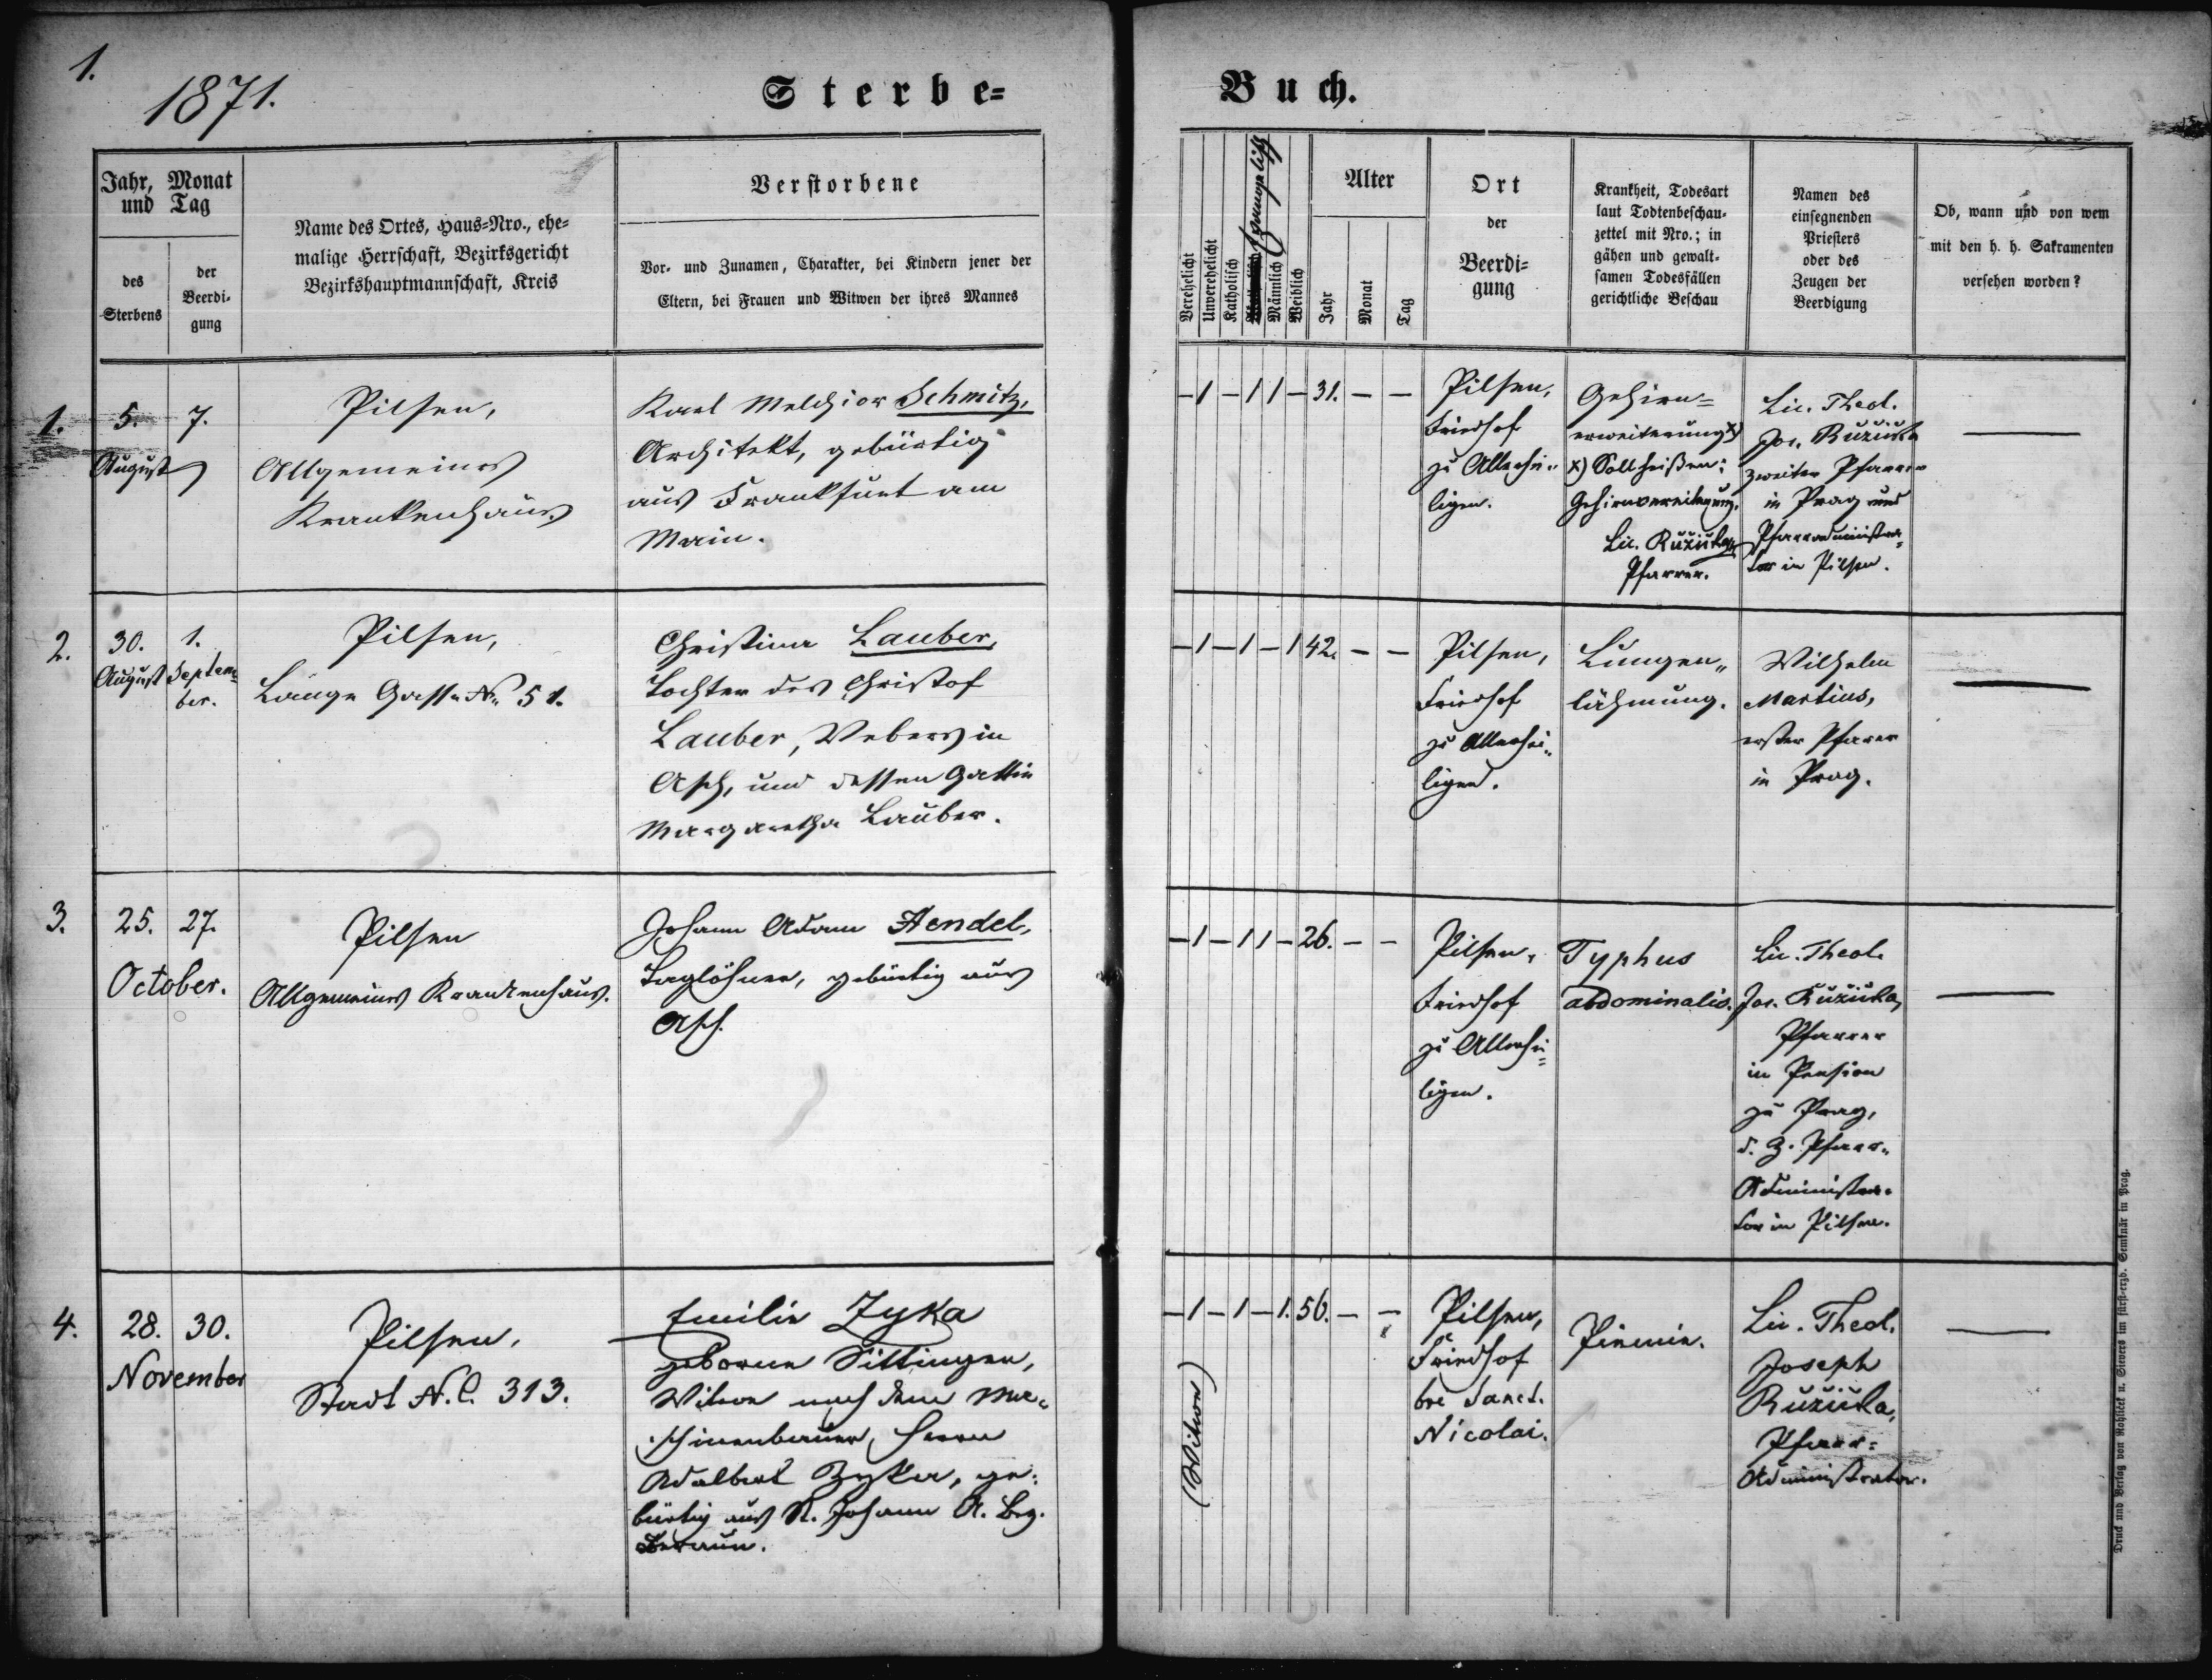 1.
1871.
Sterbe=
Buch.
Jahr, Monat
und Tag
des
Sterbens
der
Beerdi-
gung
Name des Ortes, Haus=Nro., ehe=
malige Herrschaft, Bezirksgericht
Bezirkshauptmannschaft, Kreis
Verstorbene
Vor- und Zunamen, Charakter, bei Kindern jener der
Eltern, bei Frauen und Witwen der ihres Mannes
Verehelicht
Unverehelicht
Katholisch
Evangelisch
Männlich
Weiblich
Alter
Jahr
Monat
Tag
Ort
der
Beerdi=
gung
Krankheit, Todesart
laut Todtenbeschau-
zettel mit Nro.; in
gähen und gewalt-
samen Todesfällen
gerichtliche Beschau
Namen des
einsegnenden
Priesters
oder des
Zeugen der
Beerdigung
Ob, wann und von wem
mit den h. h. Sakramenten
versehen worden?
1.
5. 7.
August
Pilsen,
Allgemeines
Krankenhaus
Karl Melchior Schmitz,
Architekt, gebürtig
aus Frankfurt am
Main.
– 1 – 1 1 – 31. – –
Pilsen,
Friedhof
zu Allerhei„
ligen.
Gehirn=
erweiterung x)
x) Soll heißen:
Gehirnvereiterung.
Lic. Růžička
Pfarrer.
Lic. Theol.
Jos. Růžička
zweiter Pfarrer
in Prag und
Pfarradministra=
tor in Pilsen.
—
2.
30. 1.
August Septem=
ber.
Pilsen,
Lange Gasse No 51.
Christina Lauber,
Tochter des Christof
Lauber, Webers in
Asch, und dessen Gattin
Margaretha Lauber.
– 1 – 1 – 1 42. – –
Pilsen,
Friedhof
zu Allerhei„
ligen.
Lungen„
lähmung.
Wilhelm
Martius,
erster Pfarrer
in Prag.
—
3.
25. 27.
October.
Pilsen
Allgemeines Krankenhaus.
Johann Adam Hendel,
Taglöhner, gebürtig aus
Asch.
– 1 – 1 1 – 26. – –
Pilsen,
Friedhof
zu Allerhei=
ligen.
Typhus
abdominalis.
Lic. Theol.
Jos. Růžička,
Pfarrer
in Pension
zu Prag,
d. Z. Pfarr„
Administra=
tor in Pilsen.
—
4.
28. 30.
November
Pilsen,
Stadt N.C. 313.
Emilie Zyka
geborene Sittinger,
Witwe nach dem Ma=
schinenbauer, Herrn
Adalbert Zyka, ge=
bürtig aus St. Johann A. Bez.
Beraun.
– 1 – 1 – 1. 56. – –
(Witwe)
Pilsen,
Friedhof
bei Sanct.
Nicolai.
Piemie.
Lic. Theol.
Joseph
Růžička,
Pfarr=
Administrator.
—
Druck und Verlag von Rohliček u. Sievers im fürst-erzb. Seminär in Prag.